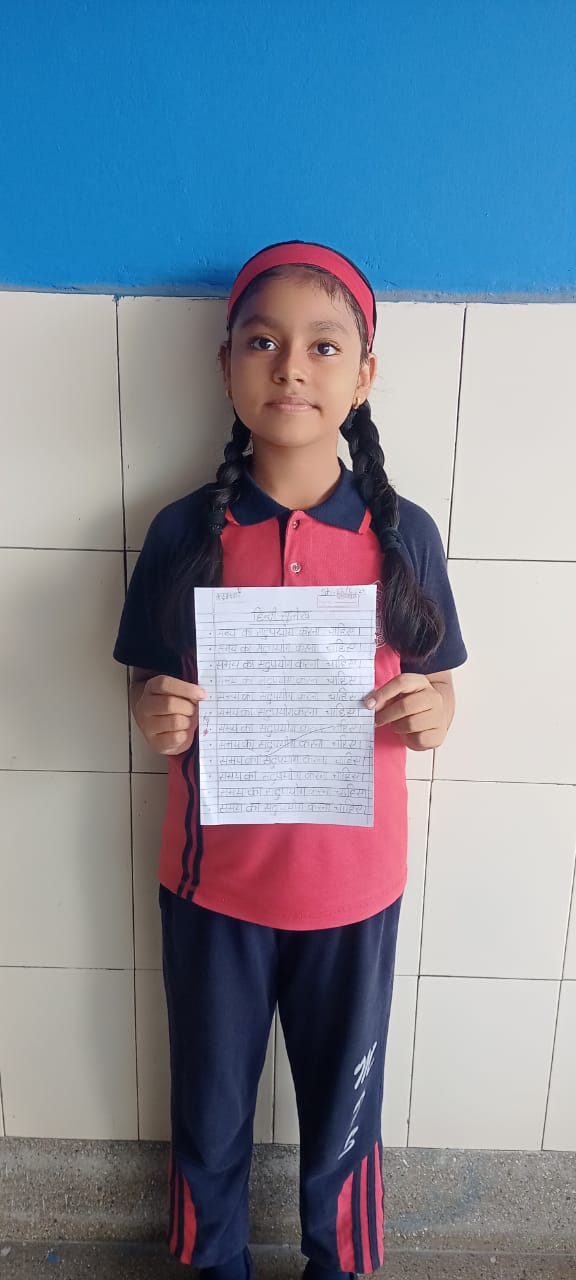 हिन्दी सुलेख
समय का सदुपयोग करना चाहिए।
समय का सदुपयोग करना चाहिए।
समय का सदुपयोग करना चाहिए।
समय का सदुपयोग करना चाहिए।
समय का सदुपयोग करना चाहिए।
समय का सदुपयोग करना चाहिए।
समय का सदुपयोग करना चाहिए।
समय का सदुपयोग करना चाहिए।
समय का सदुपयोग करना चाहिए।
समय का सदुपयोग करना चाहिए।
समय का सदुपयोग करना चाहिए।
समय का सदुपयोग करना चाहिए।